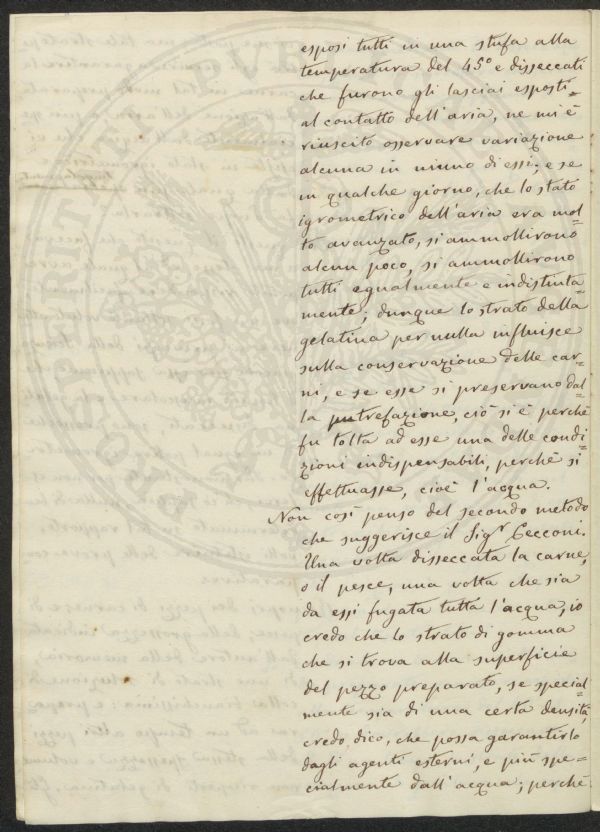 esposi tutti in una stufa alla
temperatura del 45.° e disseccati
che furono gli lasciai esposti=
al contatto dell'aria, ne mi è
riuscito osservare variazione
alcuna in niuno di essi; e se
in qualche giorno, che lo stato
igrometrico dell'aria era mol=
to avanzato, si ammollirono
alcun poco, si ammollirono
tutti egualmente e indistinta=
mente; dunque lo strato della
gelatina per nulla influisce
sulla conservazione delle car=
ni, e se esse si preservano dal=
la putrefazione, ciò si è perchè
fu tolta ad esse una delle condi=
zioni indispensabili, perchè si
effettuasse, cioè l'acqua.
Non così penso del secondo metodo
che suggerisce il Sig.r Cecconi.
Una volta disseccata la carne,
o il pesce, una volta che sia
da essi fugata tutta l'acqua, io
credo che lo strato di gomma
che si trova alla superficie
del pezzo preparato, se special=
mente sia di una certa densità,
credo, dico, che possa garantirlo
dagli agenti esterni, e più spe=
cialmente dall'acqua; perchè